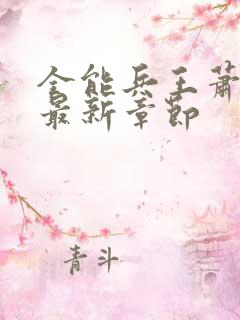 全能兵王萧
最新章节
青斗